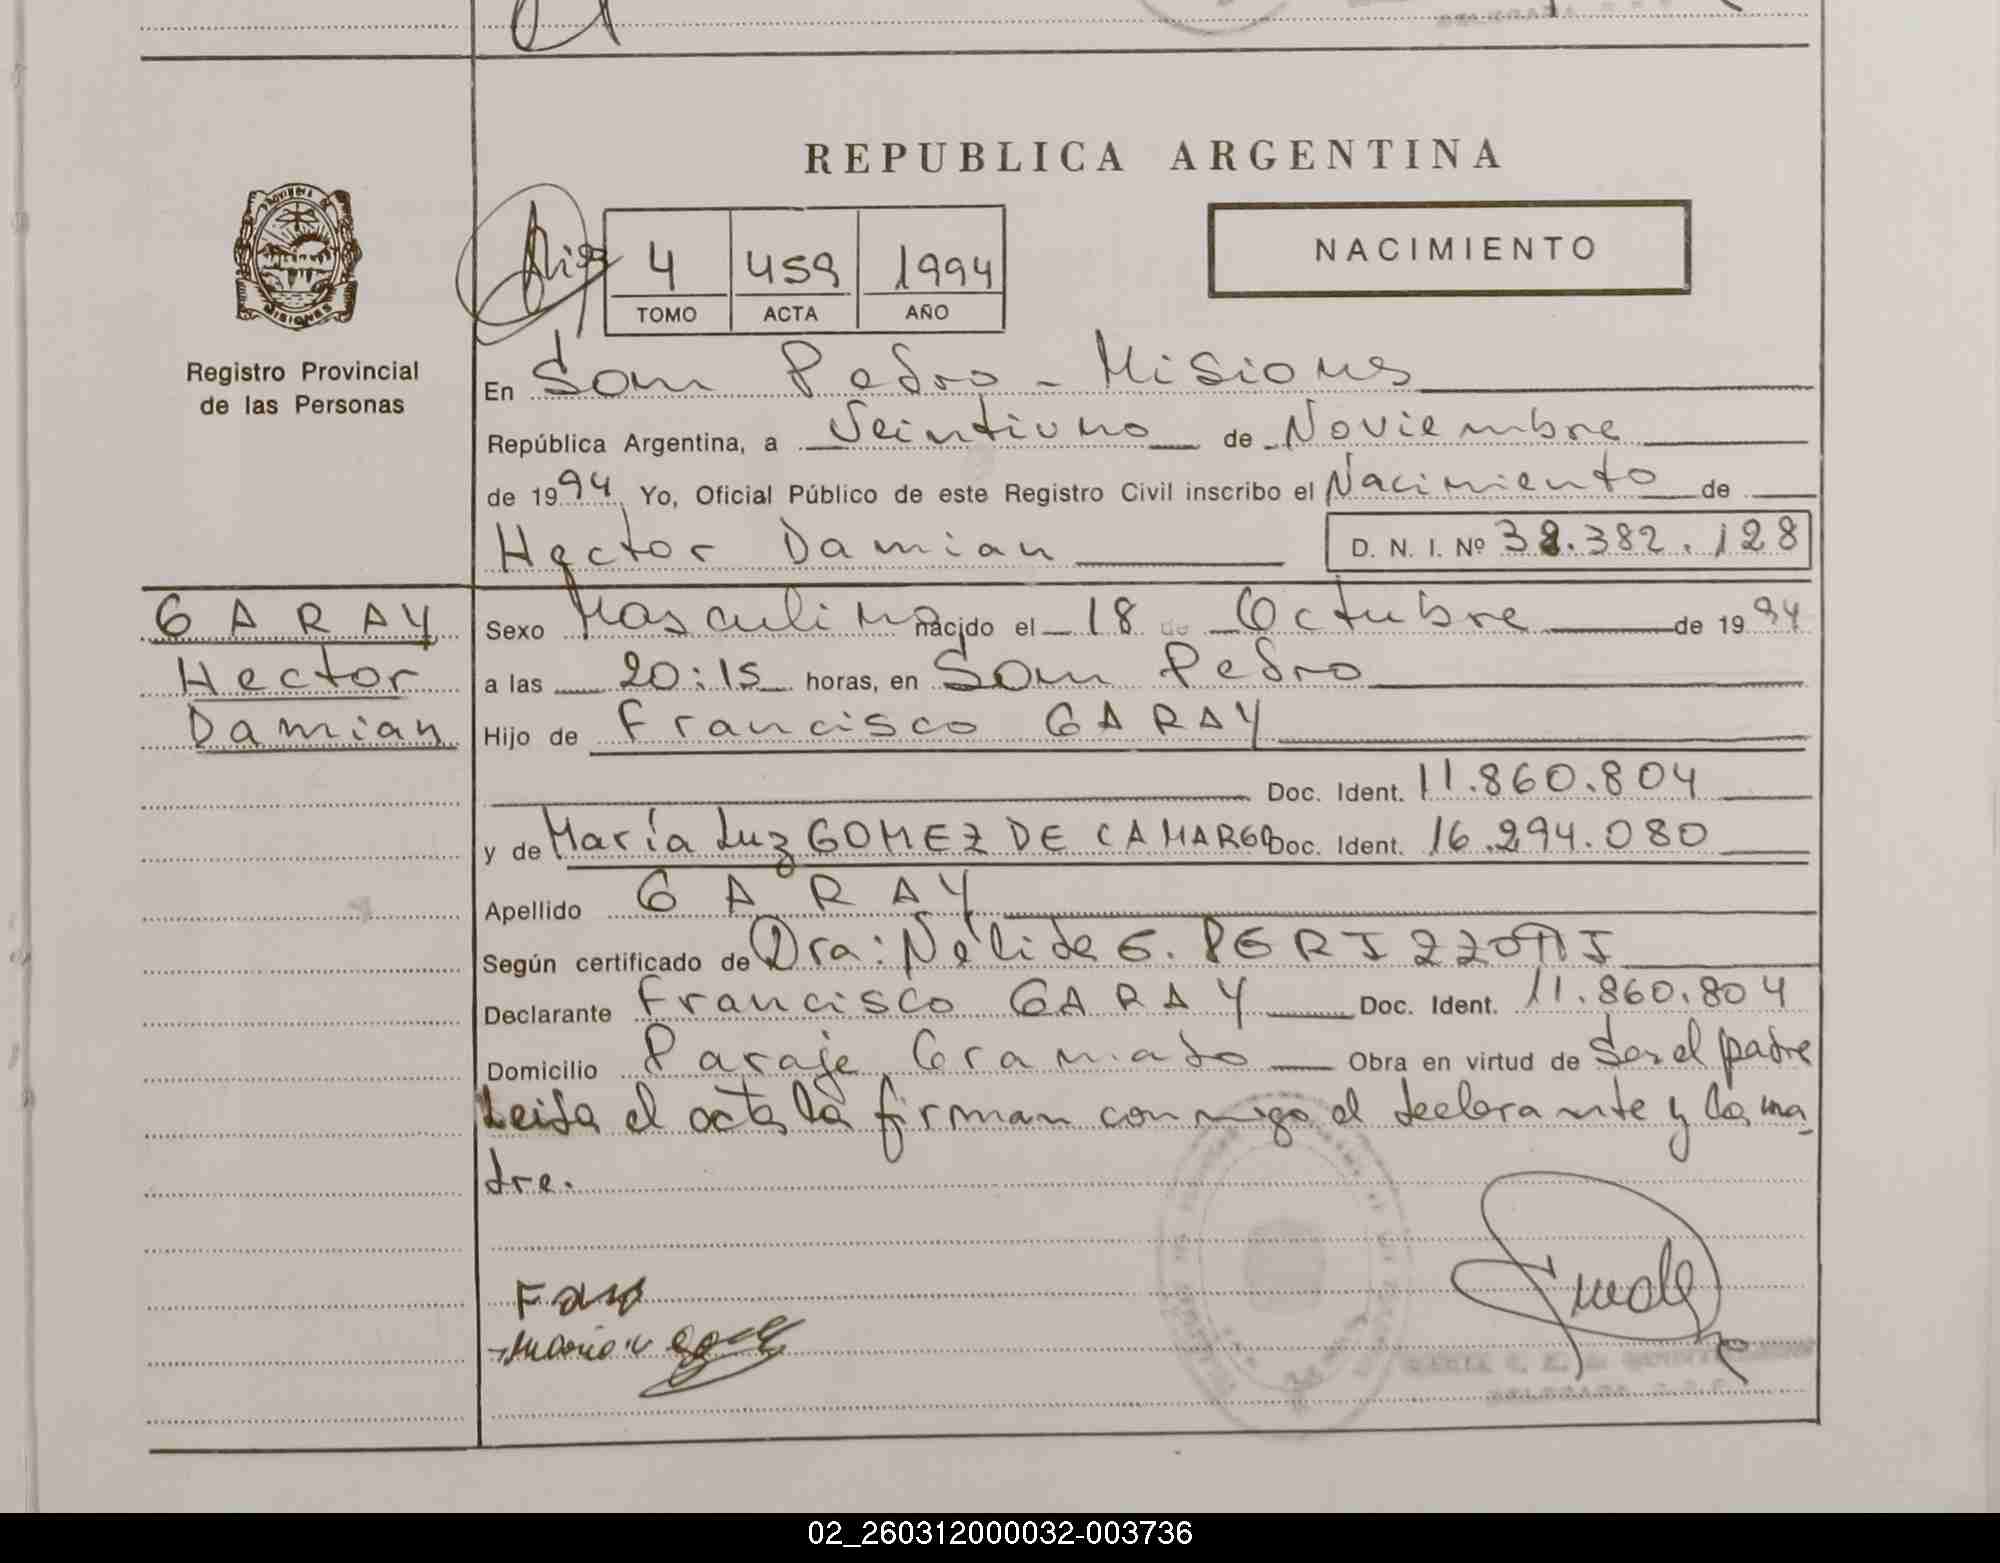 REPUBLICA ARGENTINA
NACIMIENTO
4 459 1994
TOMO ACTA AÑO
PROVINCIA DE
MISIONES
Registro Provincial
de las Personas
En San Pedro - Misiones
República Argentina, a Veintiuno de Noviembre
de 1994 Yo, Oficial Público de este Registro Civil inscribo el Nacimiento de
Hector Damian D. N. I. Nº 38.382.128
GARAY
Hector
Damian
Sexo Masculino nacido el 18 de Octubre de 1994
a las 20:15 horas, en San Pedro
Hijo de Francisco GARAY
Doc. Ident. 11.860.804
y de María Luz GOMEZ DE CAMARGO Doc. Ident. 16.294.080
Apellido GARAY
Según certificado de Dra: Nélida E. PERIZZOTTI
Declarante Francisco GARAY Doc. Ident. 11.860.804
Domicilio Paraje Gramado Obra en virtud de Ser el padre
Leida el acta la firman conmigo el declarante y la ma-
dre.
02_260312000032-003736